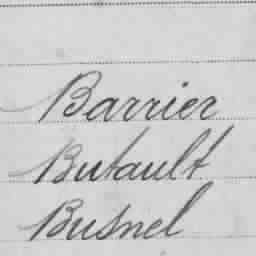 Barrier
Butault
Busnel